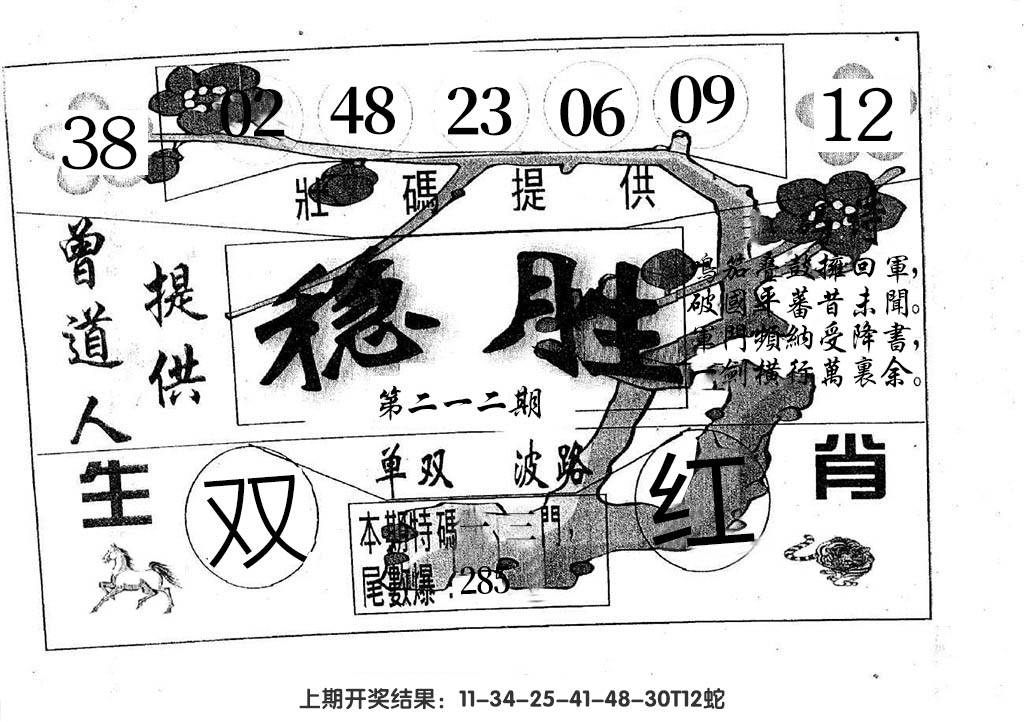 38 02 48 23 06 09 12
壯碼提供
曾道人
提供
稳胜
第二一二期
鳴笳疊鼓擁回軍，
破國平蕃昔未聞。
軍門頻納受降書，
一劍橫行萬裏余。
单双 波路
生肖
双
红
本期特碼一、三門，
尾數爆：285
上期开奖结果：11-34-25-41-48-30T12蛇